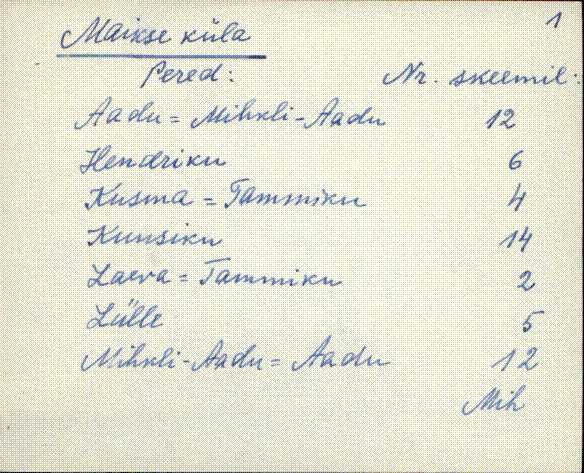 1
Maikse küla
Pered: Nr. skeemil:
Aadu = Mihkli-Aadu 12
Hendriku 6
Kusma = Tammiku 4
Kunsiku 14
Laeva = Tammiku 2
Lülle 5
Mihkli-Aadu = Aadu 12
Mih